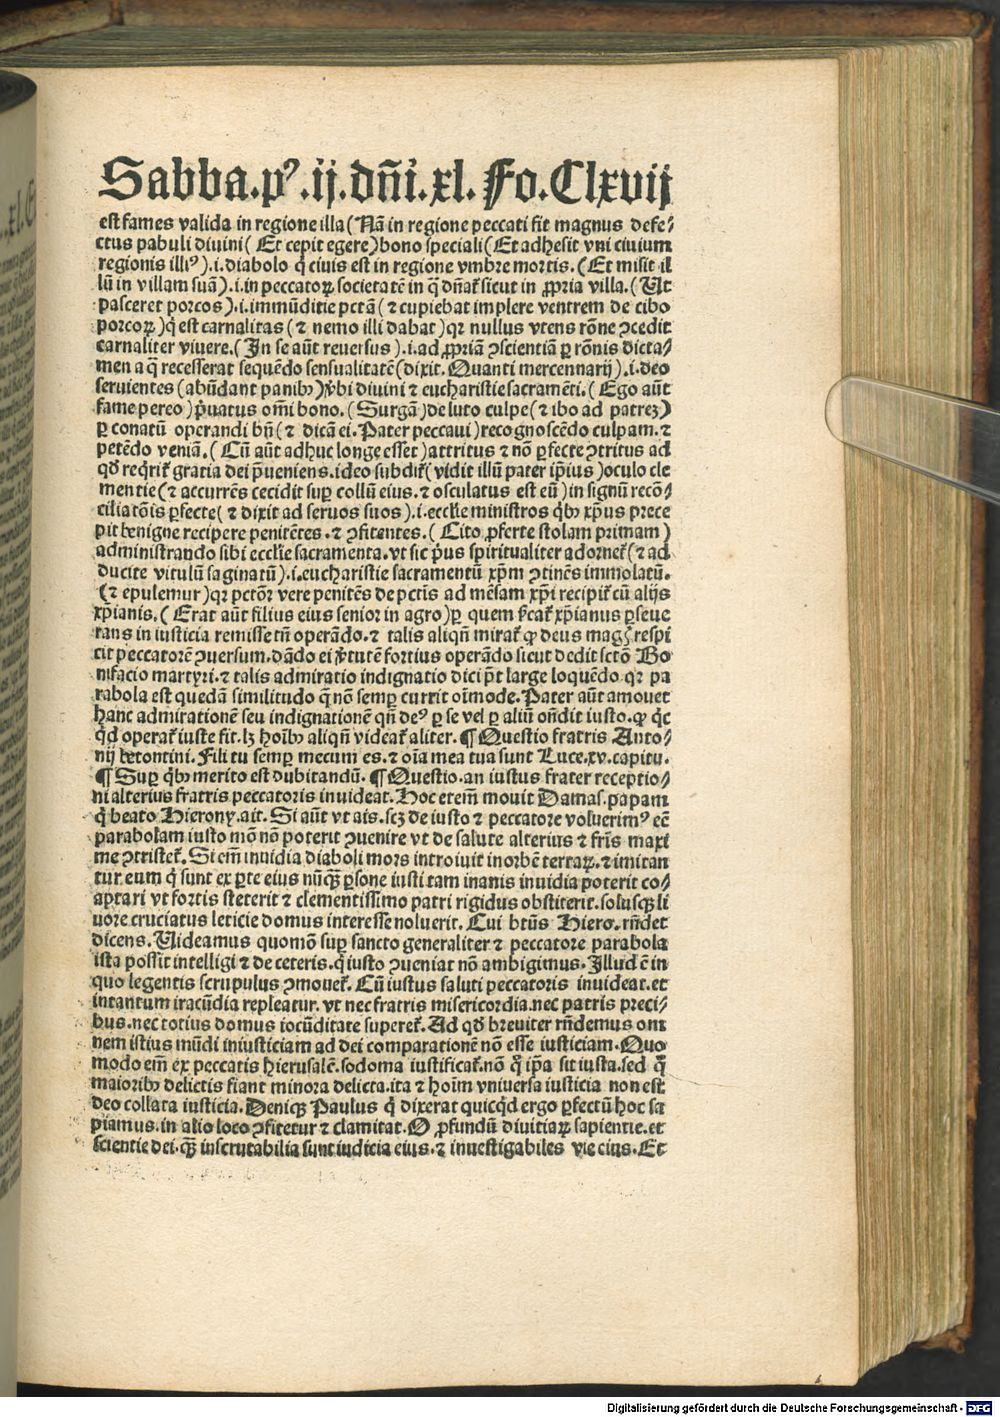 Sabba.pꝰ.ij.dn̄i.xl. Fo.Clxvij
est fames valida in regione illa (Nā in regione peccati fit magnus defe⸗
ctus pabuli diuini (Et cepit egere) bono speciali (Et adhesit vni ciuium
regionis illiꝰ).i.diabolo q̄ ciuis est in regione vmbre mortis. (Et misit il
lū in villam suā).i.in peccatoꝝ societatē in q̄ dn̄at᷑ sicut in ꝓpria villa. (Ut
pasceret porcos).i.immūditie pctā (⁊ cupiebat implere ventrem de cibo
porcoꝝ) q̄ est carnalitas (⁊ nemo illi dabat) qꝛ nullus vtens rōne ꝯcedit
carnaliter viuere. (In se aūt reuersus).i.ad ꝓpriā ꝯscientiā ꝑ rōnis dicta⸗
men a q̄ recesserat sequēdo sensualitatē (dixit. Quanti mercennarij).i.deo
seruientes (abūdant panibꝰ) v̄bi diuini ⁊ eucharistie sacramēti. (Ego aūt
fame pereo) p̄uatus om̄i bono. (Surgā) de luto culpe (⁊ ibo ad patreꝫ)
ꝑ conatū operandi bn̄ (⁊ dicā ei. Pater peccaui) recognoscēdo culpam. ⁊
petēdo veniā. (Cū aūt adhuc longe esset) attritus ⁊ nō ꝑfecte ꝯtritus ad
qd̄ reqͥrit᷑ gratia dei p̄ueniens. ideo subdit᷑ (vidit illū pater ip̄ius) oculo cle
mentie (⁊ accurrēs cecidit suꝑ collū eius. ⁊ osculatus est eū) in signū recō⸗
ciliatōis ꝑfecte (⁊ dixit ad seruos suos).i.eccl̄ie ministros qͥbꝰ xp̄us prece
pit benigne recipere penitētes. ⁊ ꝯfitentes. (Cito ꝓferte stolam primam)
administrando sibi eccl̄ie sacramenta. vt sic pͥus spiritualiter adornet᷑ (⁊ ad
ducite vitulū saginatū).i.eucharistie sacramentū xp̄m ꝯtinēs immolatū.
(⁊ epulemur) qꝛ pctōr vere penitēs de pctis ad mēsam xp̄i recipit᷑ cū alijs
xp̄ianis. (Erat aūt filius eius senior in agro) ꝑ quem p̄cat᷑ xp̄ianus ꝑseue
rans in iusticia remisse tn̄ operādo. ⁊ talis aliqn̄ mirat᷑ ꝙ deus magꝭ respi
cit peccatorē ꝯuersum. dādo ei v̄tutē fortius operādo sicut dedit sctō Bo
nifacio martyri. ⁊ talis admiratio indignatio dici pōt large loquēdo qꝛ pa
rabola est quedā similitudo q̄ nō semꝑ currit oīmode. Pater aūt amouet
hanc admirationē seu indignationē qn̄ deꝰ ꝑ se vel ꝑ aliū on̄dit iusto. ꝙ qͥc
qͥd operat᷑ iuste fit. lꝫ hoībꝰ aliqn̄ videat᷑ aliter. ¶ Questio fratris Anto⸗
nij betontini. Fili tu semꝑ mecum es. ⁊ oīa mea tua sunt Luce. xv. capitu.
¶ Suꝑ qͥbꝰ merito est dubitandū. ¶ Questio. an iustus frater receptio⸗
ni alterius fratris peccatoris inuideat. Hoc etem̄ mouit Damas. papam
q̄ beato Hierony. ait. Si aūt vt ais. scꝫ de iusto ⁊ peccatore voluerimꝰ eē
parabolam iusto mō nō poterit ꝯuenire vt de salute alterius ⁊ fr̄is maxi
me ꝯtristet᷑. Si em̄ inuidia diaboli mors introiuit in orbē terraꝝ. ⁊ imitan
tur eum q̄ sunt ex ꝑte eius nūqꝫ ꝑsone iusti tam inanis inuidia poterit co⸗
aptari vt fortis steterit ⁊ clementissimo patri rigidus obstiterit. solusqꝫ li
uore cruciatus leticie domus interesse noluerit. Cui btūs Hiero. rn̄det
dicens. Uideamus quomō suꝑ sancto generaliter ⁊ peccatore parabola
ista possit intelligi ⁊ de ceteris. q̄ iusto ꝯueniat nō ambigimus. Illud ē in
quo legentis scrupulus ꝯmouet᷑. Cū iustus saluti peccatoris inuideat. et
intantum iracūdia repleatur. vt nec fratris misericordia. nec patris preci⸗
bus. nec totius domus iocūditate superet᷑. Ad qd̄ breuiter rn̄demus om
nem istius mūdi iniusticiam ad dei comparationē nō esse iusticiam. Quo
modo em̄ ex peccatis hierusalē. sodoma iustificat᷑. nō q̄ ip̄a sit iusta. sed q̄
maioribꝰ delictis fiant minora delicta. ita ⁊ hoīm vniuersa iusticia non est
deo collata iusticia. Deniqꝫ Paulus q̄ dixerat quicqͥd ergo ꝑfectū hoc sa
piamus. in alio loco ꝯfitetur ⁊ clamitat. O ꝓfundū diuitiaꝝ sapientie. et
scientie dei. qꝫ inscrutabilia sunt iudicia eius. ⁊ inuestigabiles vie eius. Et
Digitalisierung gefördert durch die Deutsche Forschungsgemeinschaft - DFG